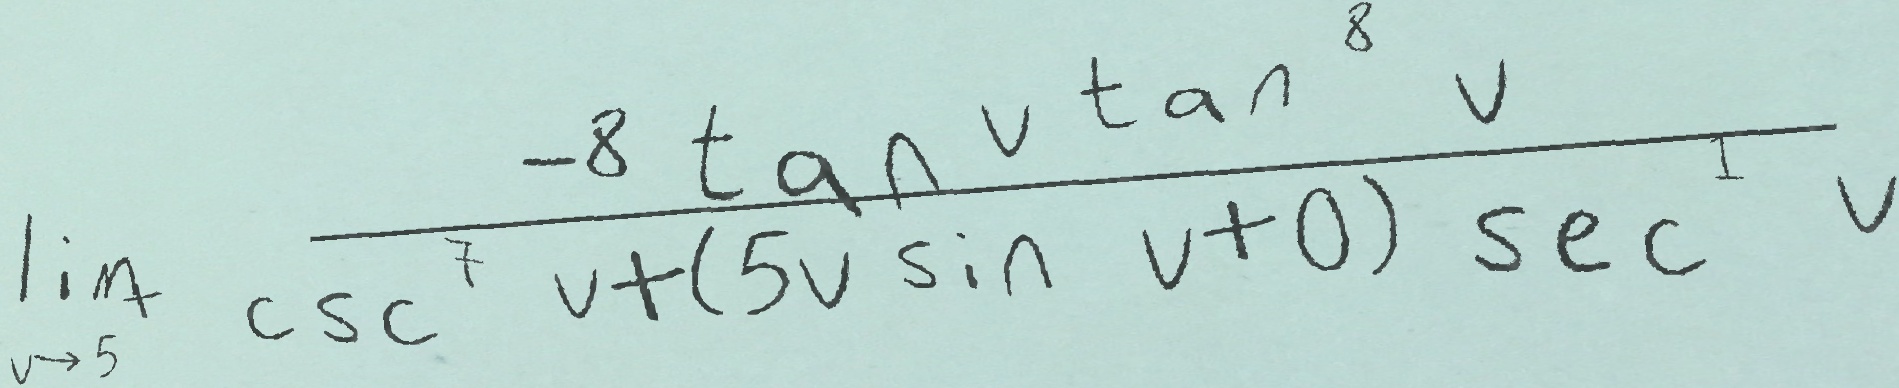 \lim_{v \to 5} \frac{-8 \tan v \tan^{8} v}{\csc^{7} v + (5v \sin v + 0) \sec^{1} v}